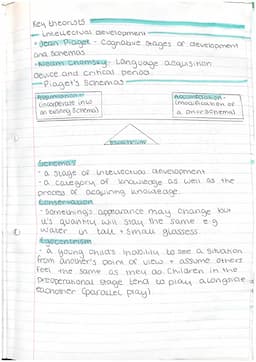 Key theorists
- Intellectual development -
- Jean Piaget - Cognitive stages of development
and schemas
- Noam Chomsky - Language acquisition
device and critical period
- Piaget's Schemas
Assimilation -
(incorporate into
an existing schema)
Accommodation -
(modification of
a prior schema)
Equilibrium
Schemas
- a stage of intellectual development
- a category of knowledge as well as the
process of acquiring knowledge.
Conservation
- Something's appearance may change but
it's quantity will stay the same e.g
water in tall + small glassess.
Egocentrism
- a young child's inability to see a situation
from another's point of view + assume others
feel the same as they do. Children in the
preoperational stage tend to play alongside
eachother (parallel play)